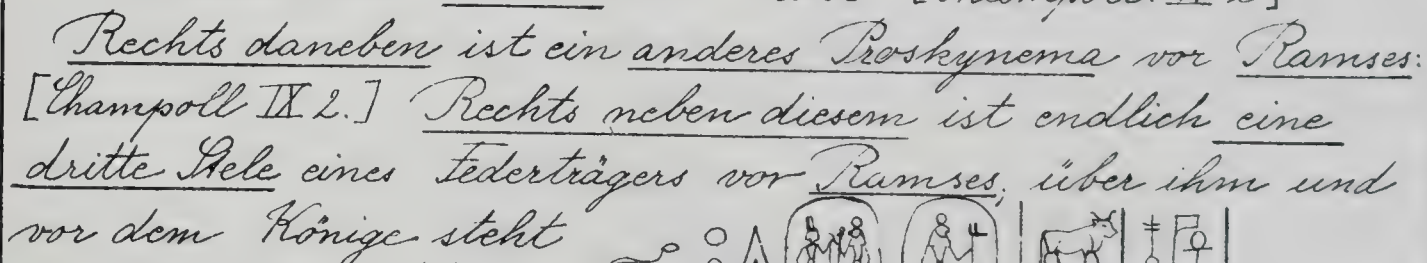 Rechts daneben ist ein anderes Proskynema vor Ramses:
[Champoll IX 2.] Rechts neben diesem ist endlich eine
dritte Stele eines Federträgers vor Ramses, über ihm und
vor dem Könige steht